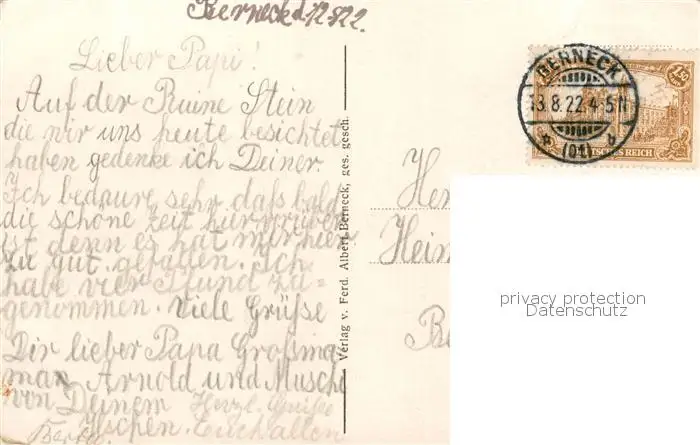 Berneck d. 12.8.22.
Lieber Papi!
Auf der Ruine Stein
die wir uns heute besichtet
haben gedenke ich Deiner.
Ich bedaure sehr daß bald
die schöne Zeit hier vorüber
ist denn es hat mir hier
zu gut gefallen. Ich
habe vier Pfund zu=
genommen. Viele Grüße
Dir lieber Papa Großma
ma Arnold und Muschi
von Deinem Herzl. Grüße
Euch allen
Verlag v. Ferd. Albert-Berneck, ges. gesch.
BERNECK
13.8.22 4-5 N
(Ofr)
1,50
DEUTSCHES REICH
He
Hein
Be
privacy protection
Datenschutz